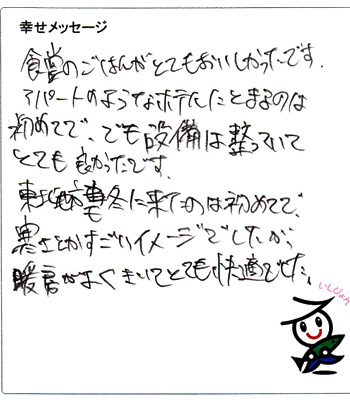 幸せメッセージ
食堂のごはんがとてもおいしかったです.
アパートのようなホテルにとまるのは
初めてで、でも設備は整っていて
とても良かったです.
東北地方も冬に来たのは初めてで、
寒さとかすごいイメージでしたが、
暖房がよくきいてとても快適でした。